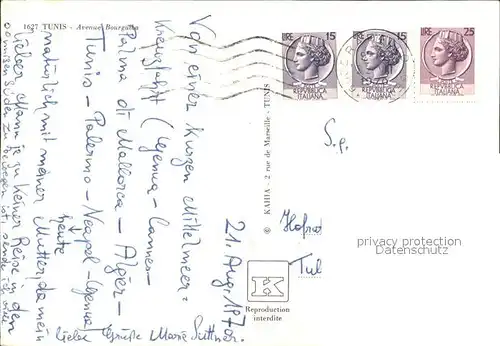 1627 TUNIS - Avenue Bourguiba
Von einer kurzen Mittelmeer=
kreuzfahrt (Genua - Cannes -
Palma di Mallorca - Algier -
Tunis - Palermo - Neapel - Genua)
heute
natürlich mit meiner Mutter, da mein
lieber Mann ja zu keiner Reise in den
Süden zu bewegen ist, sende ich
liebe Grüße Marie Suttner.
21. Aug. 1970
© KAHIA - 2 rue de Marseille - TUNIS
LIRE 15
REPUBBLICA
ITALIANA
LIRE 15
REPUBBLICA
ITALIANA
LIRE 25
REPUBBLICA
ITALIANA
S.g.
Hofrat
Tul
privacy protection
Datenschutz
K
Reproduction
interdite